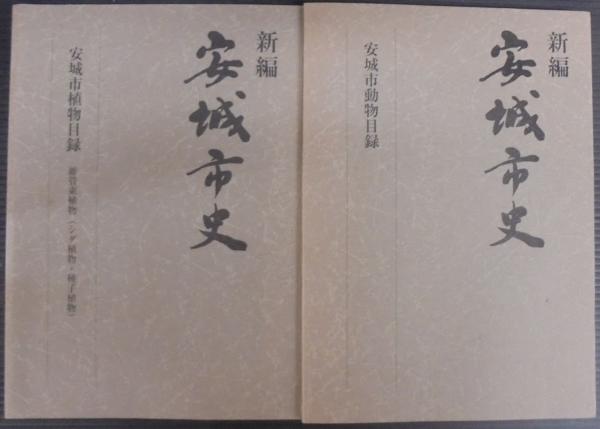 新編
安城市史
安城市植物目録
維管束植物（シダ植物・種子植物）
新編
安城市史
安城市動物目録